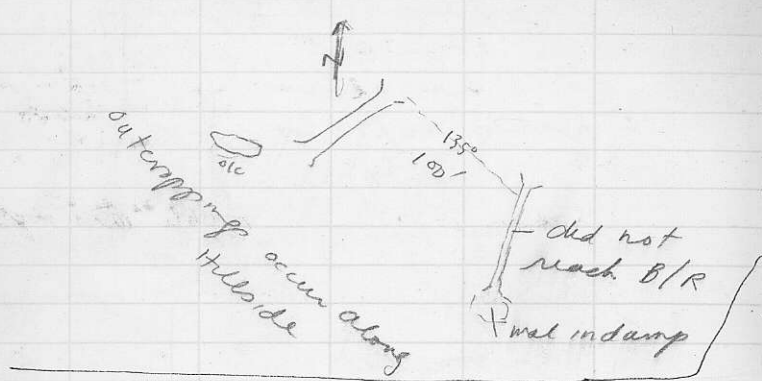 N
135°
100'
o/c
outcroppings occur along
Hillside
did not
reach B/R
mal in damp